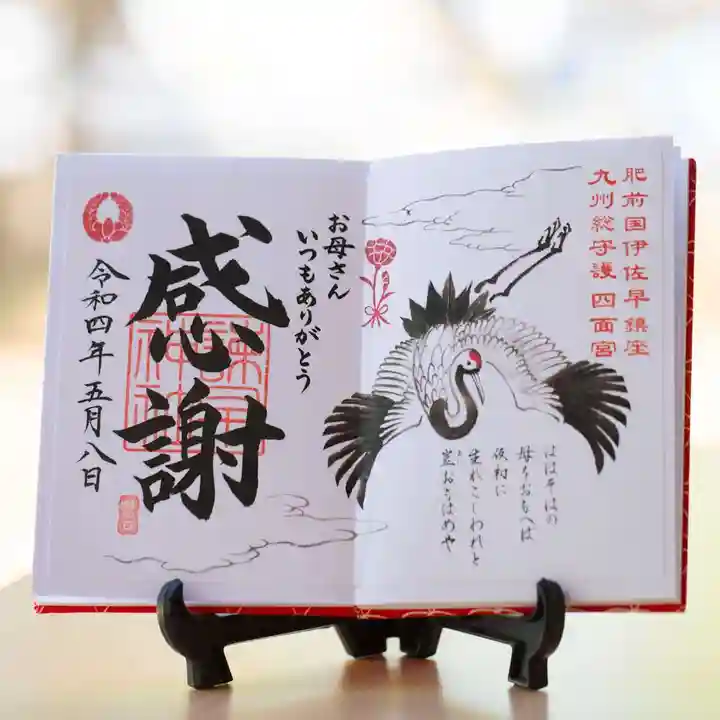 肥前国伊佐早鎮座
九州総守護 四面宮
ははそはの
母をおもへは
仮初に
生れこしわれと
豈おもはめや
お母さん
いつもありがとう
感謝
諫早神社
令和四年五月八日